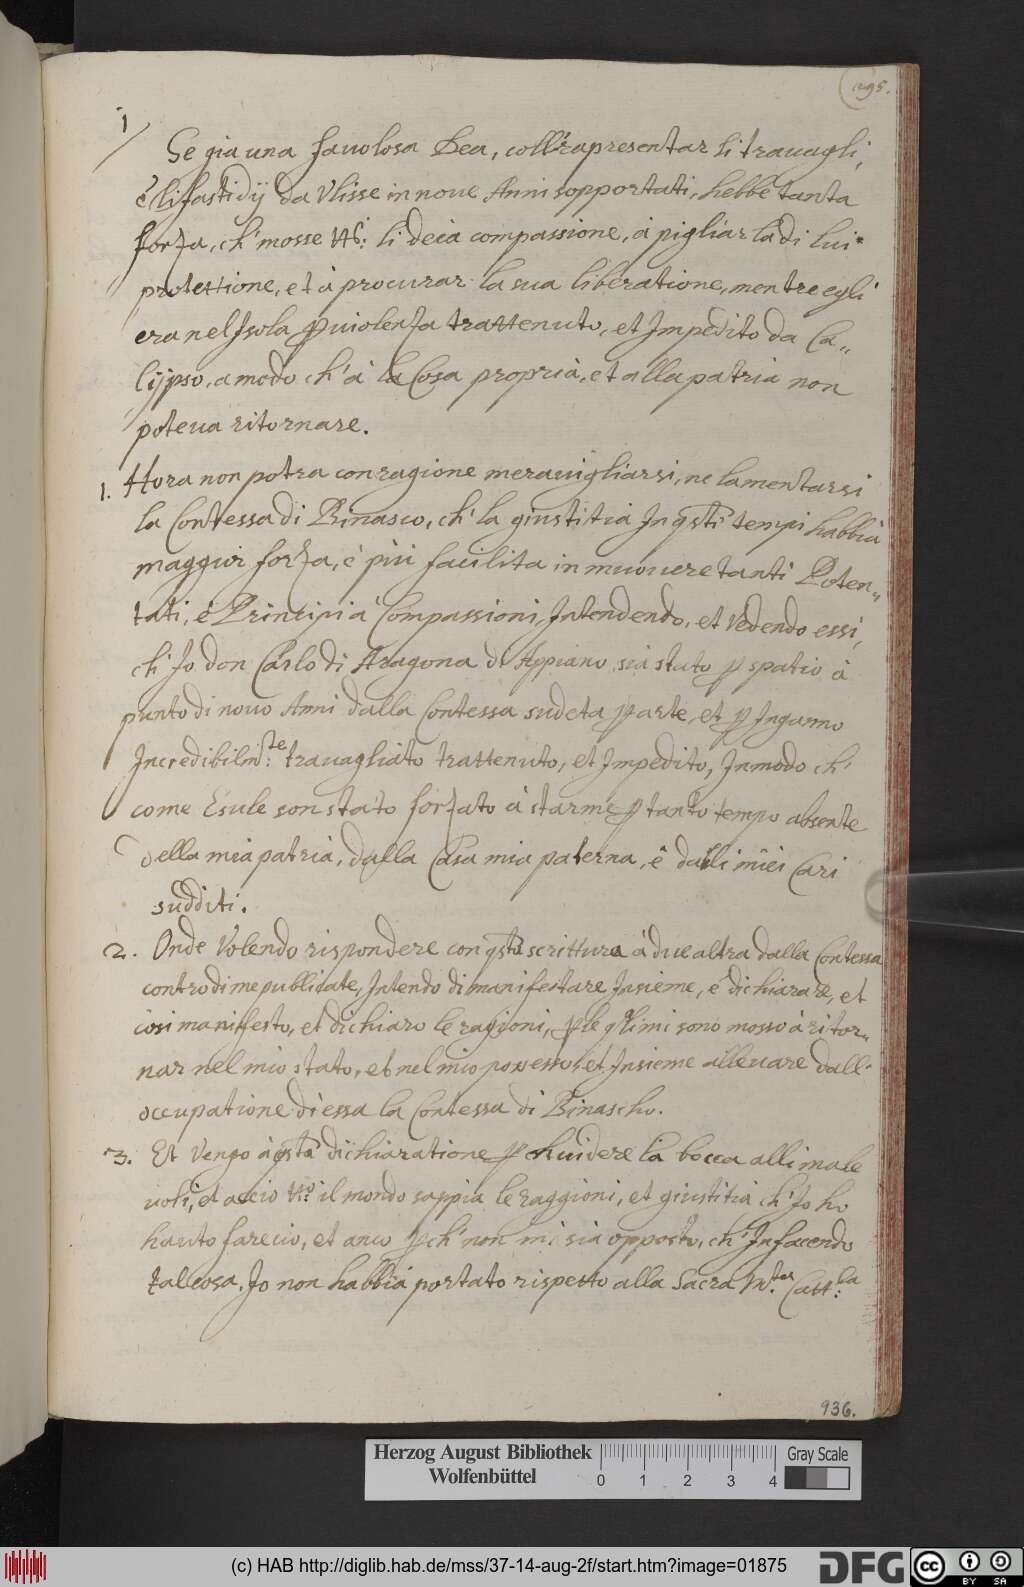 295.
1
Se gia una favolosa Dea, coll' rapresentar li travagli,
è li fastidÿ da Vlisse in noue Anni sopportati, hebbe tanta
forza, ch' mosse li deià compassione, à pigliar la di lui
protettione, et à procurar la sua liberatione, mentre egli
era nel Isola ꝑ violenza trattenuto, et Impedito da Ca-
lypso, a modo ch' à la Cosa propria, et alla patria non
poteua ritornare.
1. Hora non potra con ragione meravigliarsi, ne lamentarsi
la Contessa di Binasco, ch' la giustitia In qsti tempi habbia
maggior forza, è più facilita in muouere tanti Poten-
tati, è Principi à Compassioni, Intendendo, et Vedendo essi,
ch' Io don Carlo di Aragona di Appiano sia stato ꝑ spatio à
punto di nouo Anni dalla Contessa sudeta ꝑ arte, et ꝑ Inganno
Incredibilmte: travagliato trattenuto, et Impedito, Inmodo ch'
come Esule son stato forzato à starme ꝑ tanto tempo absente
della mia patria, dalla Casa mia paterna, è dalli miei Cari
sudditi.
2. Onde Volendo rispondere con qsta scrittura à due altra dalla Contessa
contro di me publicate, Intendo di manifestare Insieme, è dichiarare, et
cosi manifesto, et dichiaro le ragioni, ꝑ le qli mi sono mosso à ritor-
nar nel mio stato, et nel mio possesso, et Insieme alleuare dall'
occupatione di essa la Contessa di Binascho.
3. Et Vengo à qsta dichiaratione ꝑ chuidere la bocca alli male
uoli, et acciò il mondo sappia le raggioni, et giustitia ch' Io ho
hauto far ciò, et anco ꝑch' non mi sia opposto, ch' In facendo
tal cosa, Io non habbia portato rispetto alla Sacra Mta: Catt:ca
936.
Herzog August Bibliothek
Wolfenbüttel
0 1 2 3 4
Gray Scale
(c) HAB http://diglib.hab.de/mss/37-14-aug-2f/start.htm?image=01875
DFG
cc BY SA